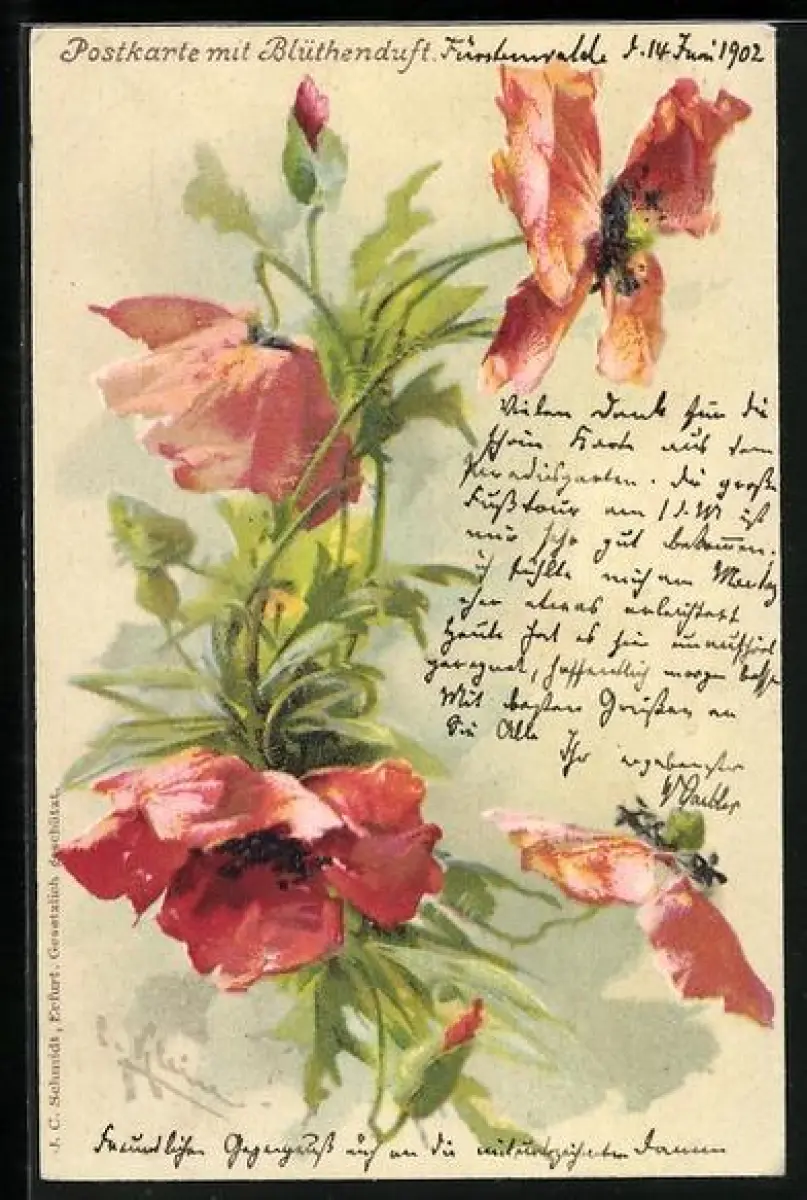 Postkarte mit Blüthenduft. Fürstenwalde d. 14 Juni 1902
Vielen Dank für die
schöne Karte aus dem
Paradiesgarten. Die große
Fußtour am 1 d. M ist
mir sehr gut bekommen.
ich fühlte mich am Montag
eher etwas erleichtert
Heute hat es hier unaufhörl
geregnet, hoffentlich morgen besser
Mit besten Grüßen an
Sie Alle
Ihr ergebenster
Freundlichen Gegengruß auch an die mitunterzeichneten Damen
C. Klein
J. C. Schmidt, Erfurt. Gesetzlich geschützt.